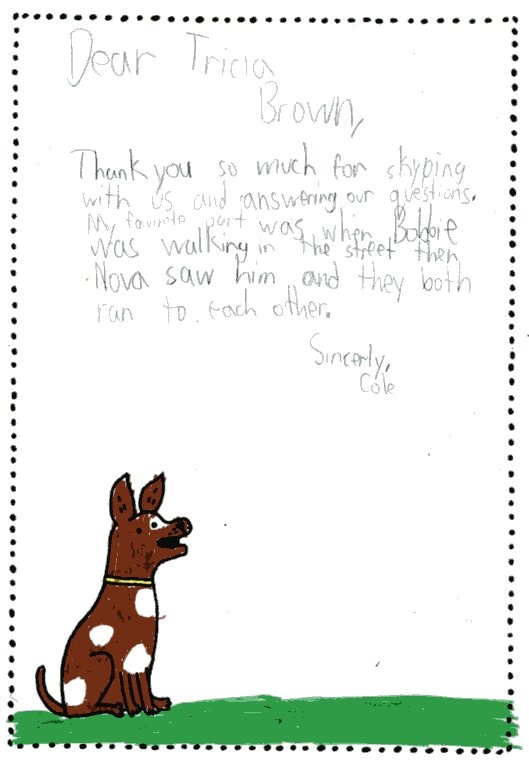 Dear Tricia
Brown,
Thank you so much for skyping
with us and answering our questions.
My favirote part was when Bobbie
was walking in the street then
Nova saw him and they both
ran to each other.
Sincerly,
Cole